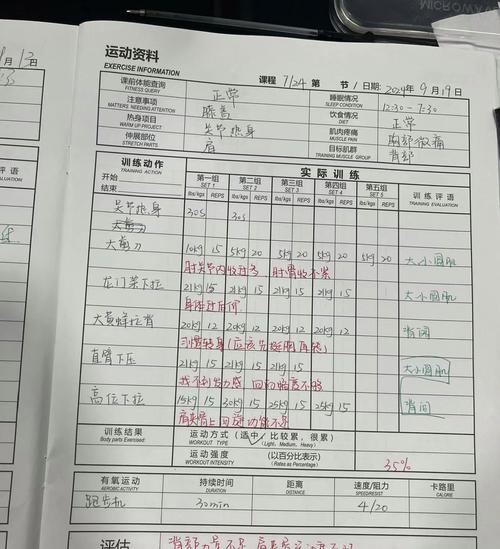 9月13日
运动资料
EXERCISE INFORMATION
课程 7/24 第 节 / 日期: 2024年9月19日
课前体能查询 正常 睡眠情况 12:30-7:30
FITNESS QUERY SLEEP CONDITION
注意事项 膝盖 饮食情况 正常
MATTERS NEEDING ATTENTION DIET
热身项目 关节热身 肌肉疼痛 胸部微痛
WARM UP PROJECT MUSCLE PAIN
伸展部位 肩 目标肌群 背部
STRETCH PARTS TRAINING MUSCLE GROUP
训练动作 实际训练
TRAINING ACTION
开始 第一组 第二组 第三组 第四组 第五组 训练评语
结束 SET 1 SET 2 SET 3 SET 4 SET 5 TRAINING EVALUATION
lbs/kgs REPS lbs/kgs REPS lbs/kgs REPS lbs/kgs REPS lbs/kgs REPS
关节热身 30s 30s
大剪刀 10kg 15 5kg 20 5kg 20 5kg 20 5kg 20 大小圆肌
龙门架下拉 21kg 15 21kg 15 21kg 15 21kg 15 大小圆肌
身体过后仰
大黄蜂拉背 20kg 12 20kg 12 20kg 12 20kg 12 背阔
直臂下压 21kg 15 21kg 15 21kg 15 大小圆肌
找不到发力感 回的幅度不够
高位下拉 15kg 15 30kg 15 25kg 15 25kg 15 背阔
训练结果 运动方式 (适中, 比较累, 很累)
Body parts Exercised: WORKOUT TYPE (Light, Medium, Heavy)
运动强度 (以百分比表示) 35%
WORKOUT INTENSITY (Rates as Percentage)
有氧运动 持续时间 距离 速度/阻力 卡路里
AEROBIC ACTIVITY DURATION DISTANCE SPEED/RESIST CALORIE
跑步机 30min 4/20
评估